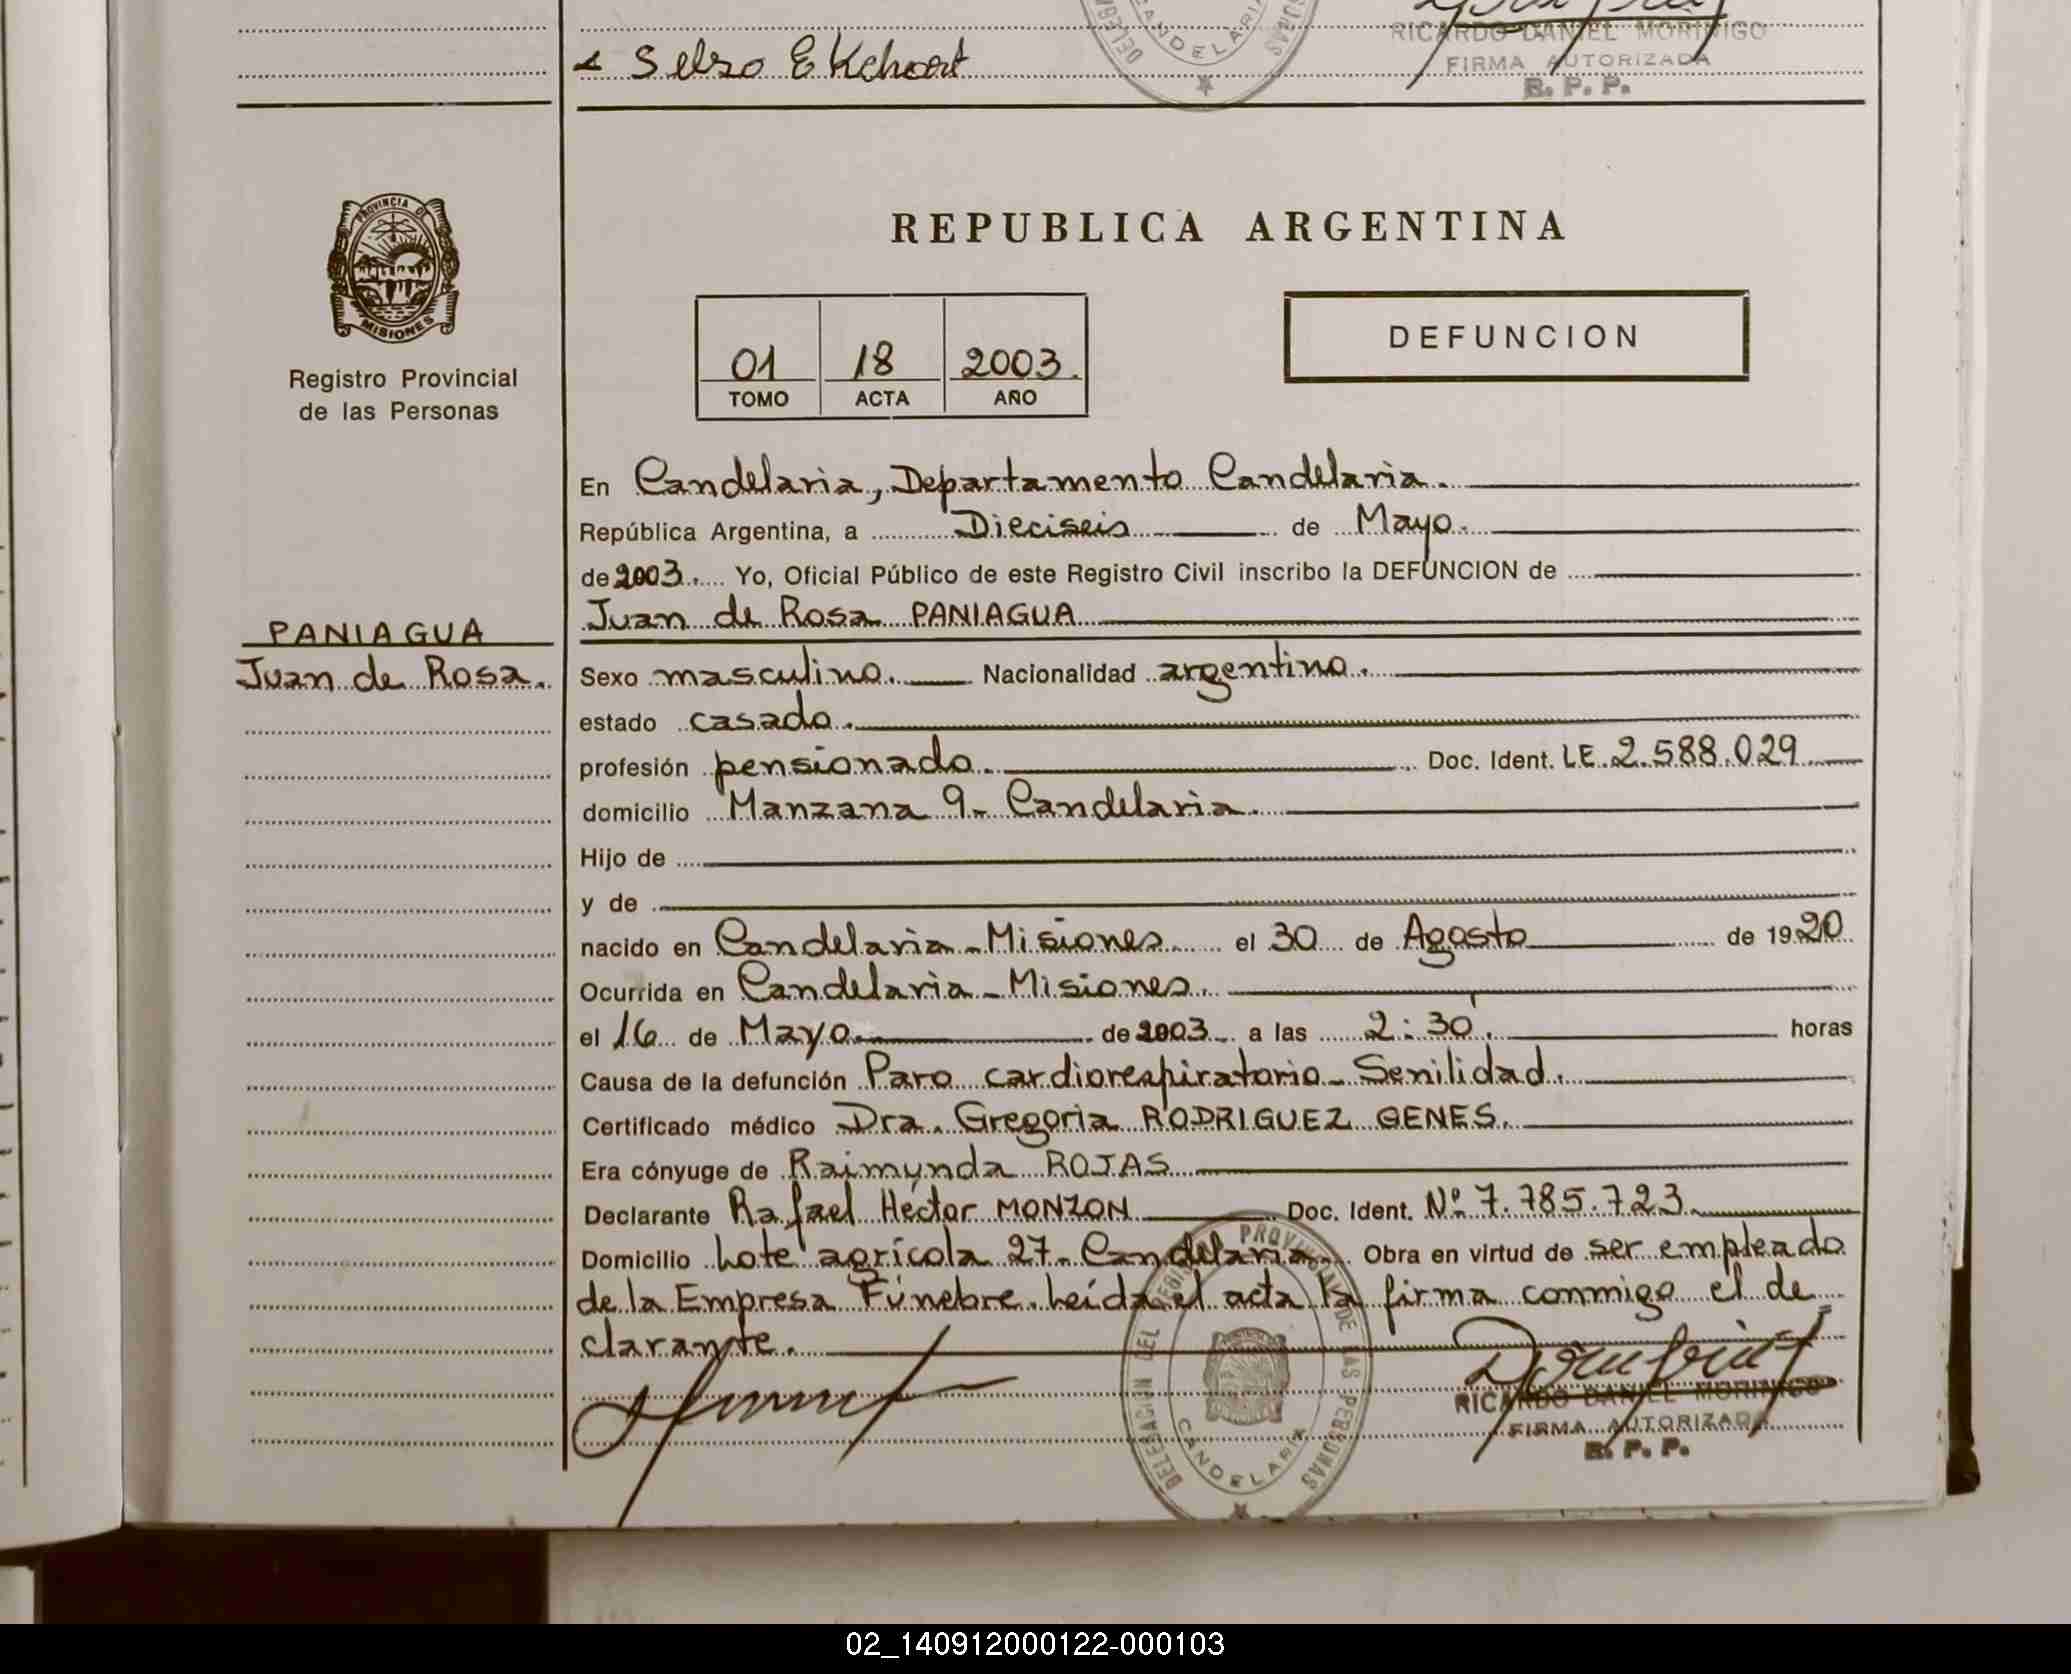 Selso Ekhoort
DELEGA
CANDELARIA
SONAS
RICARDO DANIEL MORINIGO
FIRMA AUTORIZADA
R. P. P.
PROVINCIA DE
MISIONES
Registro Provincial
de las Personas
REPUBLICA ARGENTINA
01 18 2003.
TOMO ACTA AÑO
DEFUNCION
PANIAGUA
Juan de Rosa.
En Candelaria, Departamento Candelaria.
República Argentina, a Dieciseis de Mayo.
de 2003. Yo, Oficial Público de este Registro Civil inscribo la DEFUNCION de
Juan de Rosa PANIAGUA
Sexo masculino. Nacionalidad argentino.
estado casado.
profesión pensionado. Doc. Ident. LE.2.588.029
domicilio Manzana 9- Candelaria.
Hijo de
y de
nacido en Candelaria-Misiones el 30 de Agosto de 1920
Ocurrida en Candelaria-Misiones.
el 16 de Mayo. de 2003 a las 2:30'. horas
Causa de la defunción Paro cardiorespiratorio-Senilidad.
Certificado médico Dra. Gregoria RODRIGUEZ GENES.
Era cónyuge de Raimunda ROJAS
Declarante Rafael Héctor MONZON Doc. Ident. Nº 7.785.723
Domicilio Lote agrícola 27- Candelaria. Obra en virtud de ser empleado
de la Empresa Fúnebre. Leída el acta la firma conmigo el de
clarante.
DELEGACION DEL REGISTRO PROVINCIAL DE LAS PERSONAS
CANDELARIA
RICARDO DANIEL MORINIGO
FIRMA AUTORIZADA
R. P. P.
02_140912000122-000103